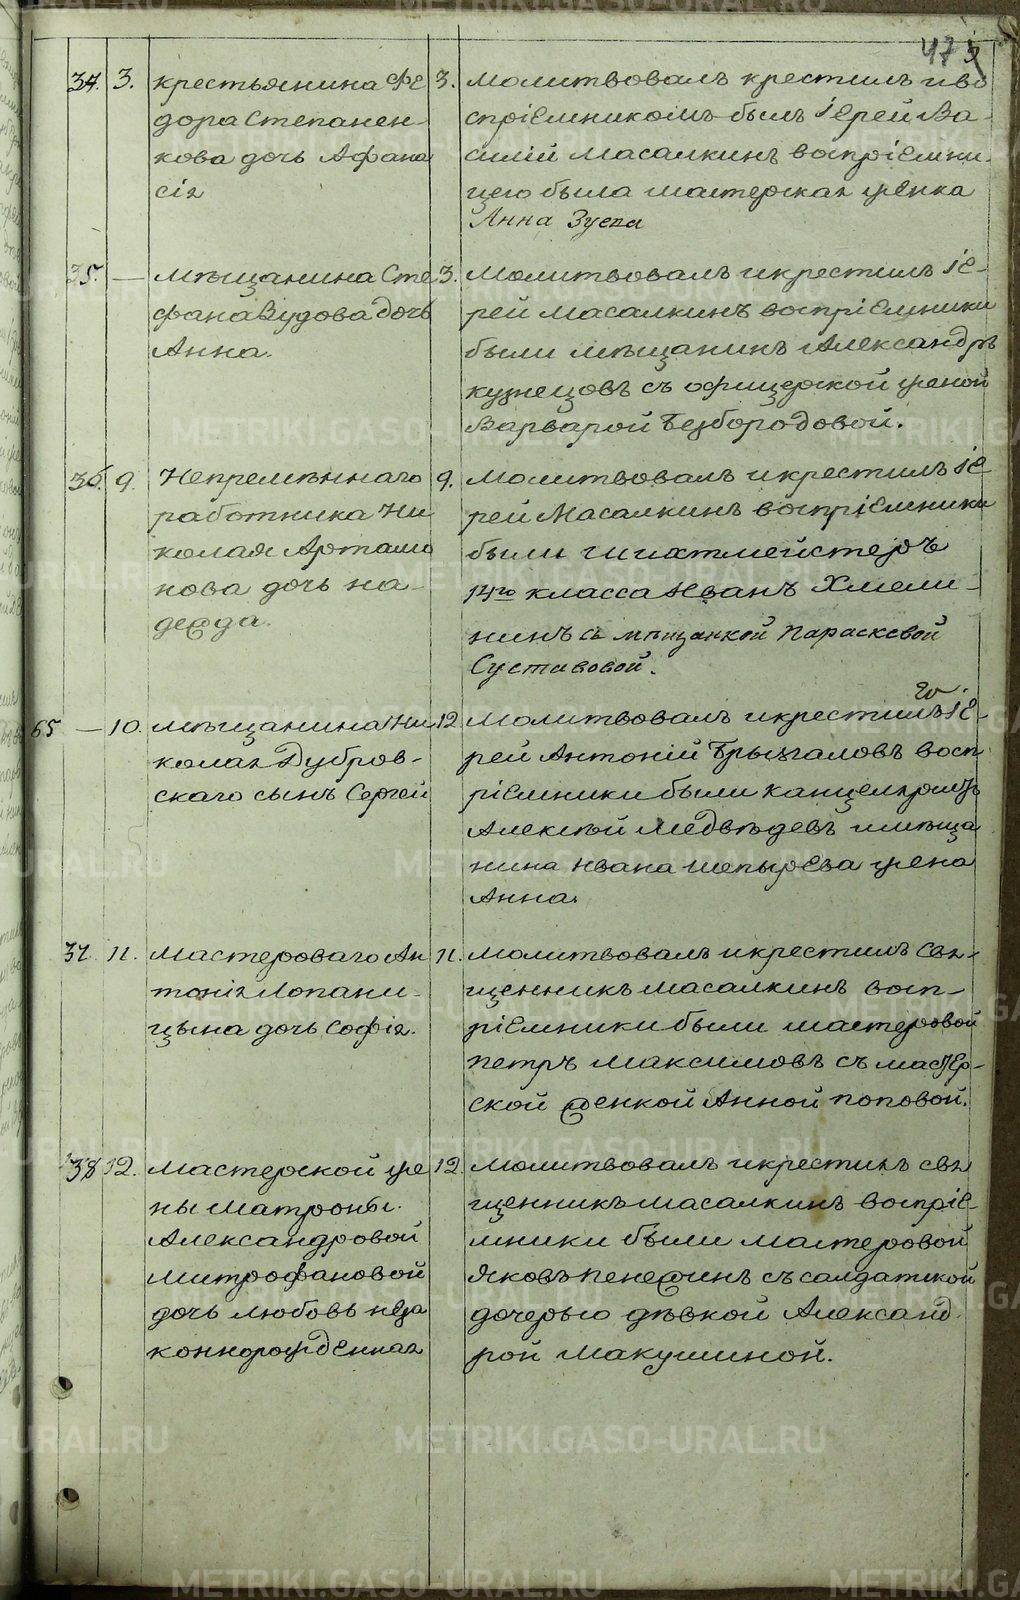 473
34. 3. крестьянина Фе
дора Степанен
кова дочь Афана
сія
3. Молитвовалъ крестилъ и во
спріемникомъ былъ Іерей Ва
силій Масалкинъ воспріемни
цею была мастерская женка
Анна Зуева
35. — мѣщанина Сте
фана Вудова дочь
Анна.
3. Молитвовалъ и крестилъ Іе-
рей Масалкинъ воспріемники
были мѣщанинъ Александръ
кузнецовъ съ офицерской женой
Варварой Безбородовой.
36. 9. Непремѣннаго
работника Ни
колая Артамо
нова дочь на-
дежда.
9. Молитвовалъ и крестилъ Іе
рей Масалкинъ воспріемники
были шихтмейстеръ
14го класса Иванъ Хмели-
нинъ съ мѣщанкой Параскевой
Суставовой.
65 — 10. мѣщанина Ни
колая Дубров-
скаго сынъ Сергей
12 Молитвовалъ и крестилъ Іе-
рей Антоній Брызгаловъ восп
ріемники были канцеляристъ
Алексѣй Медвѣдевъ и мѣща
нина Ивана шепырева жена
Анна.
37. 11. Мастероваго Ан
тонія Лопани-
цына дочь Софія.
11. Молитвовалъ и крестилъ Свя-
щенникъ Масалкинъ восп-
ріемники были мастеровой
петръ Максимовъ съ мастер-
ской женкой Анной поповой.
38 12. Мастерской же
ны Матроны
Александровой
Митрофановой
дочь любовь неза
коннорожденная
12 Молитвовалъ и крестилъ свя
щенникъ Масалкинъ воспріе-
мники были Мастеровой
Яковъ пенежинъ съ салдатской
дочерью дѣвкой Александ
рой Макушиной.